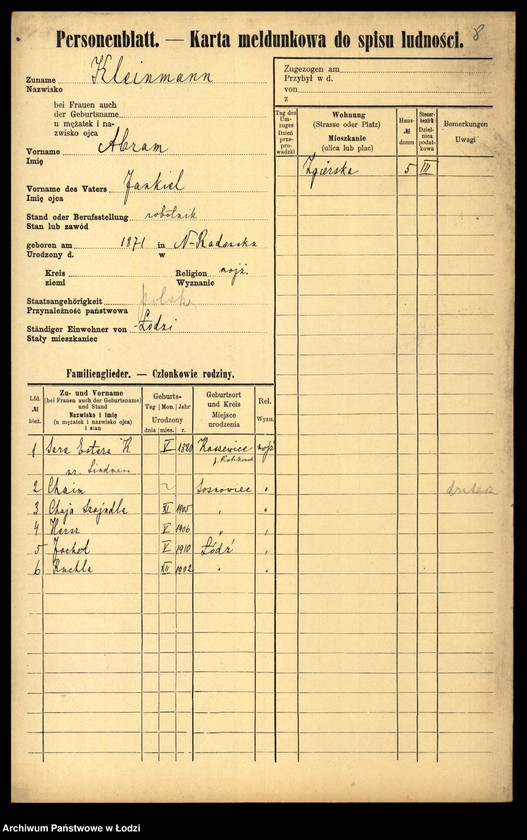 8
Personenblatt. — Karta meldunkowa do spisu ludności.
Zuname Kleinmann
Nazwisko
bei Frauen auch
der Geburtsname
u mężatek i na-
zwisko ojca
Vorname Abram
Imię
Vorname des Vaters Jankiel
Imię ojca
Stand oder Berufsstellung robotnik
Stan lub zawód
geboren am 1871 in N-Radomsku
Urodzony d. w
Kreis Religion mojż.
ziemi Wyznanie
Staatsangehörigkeit polsk.
Przynależność państwowa
Ständiger Einwohner von Łodzi
Stały mieszkaniec
Zugezogen am
Przybył w d.
von
z
Tag des Um-zuges Dzień prze-pro-wadzki
Wohnung
(Strasse oder Platz)
Mieszkanie
(ulica lub plac)
Haus-№ domu
Steuer-bezirk Dziel-nica podat-kowa
Bemerkungen
Uwagi
Zgierska 5 III
Familienglieder. — Członkowie rodziny.
Lfd. № bież.
Zu- und Vorname
(bei Frauen auch der Geburtsname)
und Stand
Nazwisko i imię
(u mężatek i nazwisko ojca)
i stan
Geburts-
Tag Mon. Jahr
Urodzony
dnia mies. r.
Geburtsort
und Kreis
Miejsce
urodzenia
Rel.
Wyzn.
1 Sara Estera K V 1880 mojż
2 Chaim Sosnowiec "
3 Chaja Szajndla XI 1905 " "
4 Hersz V 1906 " "
5 Jochel V 1910 Łódź "
6 Ruchla XII 1902 " "
Archiwum Państwowe w Łodzi